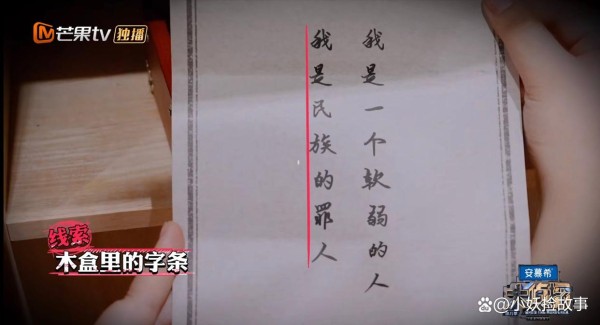 芒果tv 独播
我是一个软弱的人
我是民族的罪人
线索
木盒里的字条
安慕希
@小妖捡故事